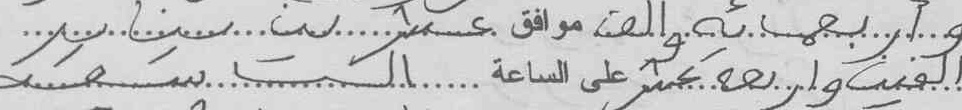 وأربعمائة وألف موافق عشر من يناير
ألفين وأربعة عشر على الساعة التاسعة